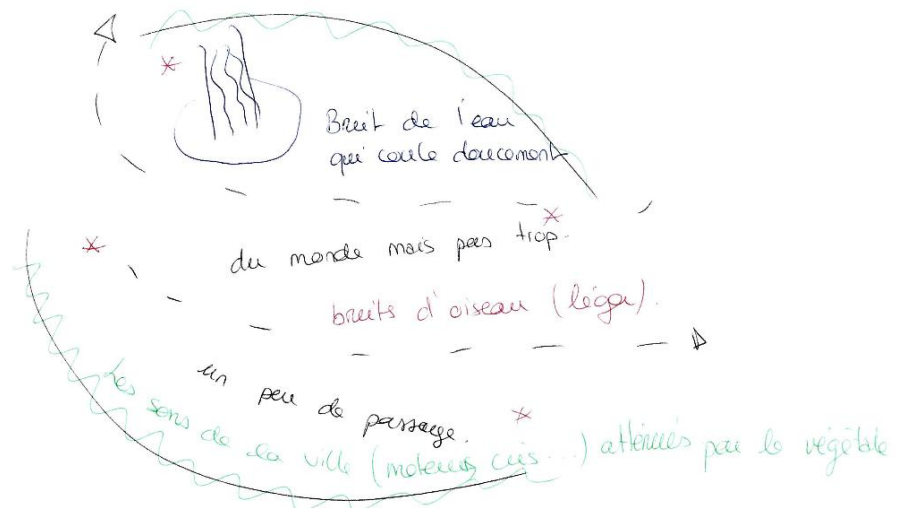 Bruit de l'eau
qui coule doucement
du monde mais pas trop.
bruits d'oiseau (léger).
un peu de passage.
Les sons de la ville (moteurs cris...) atténués par le végétale